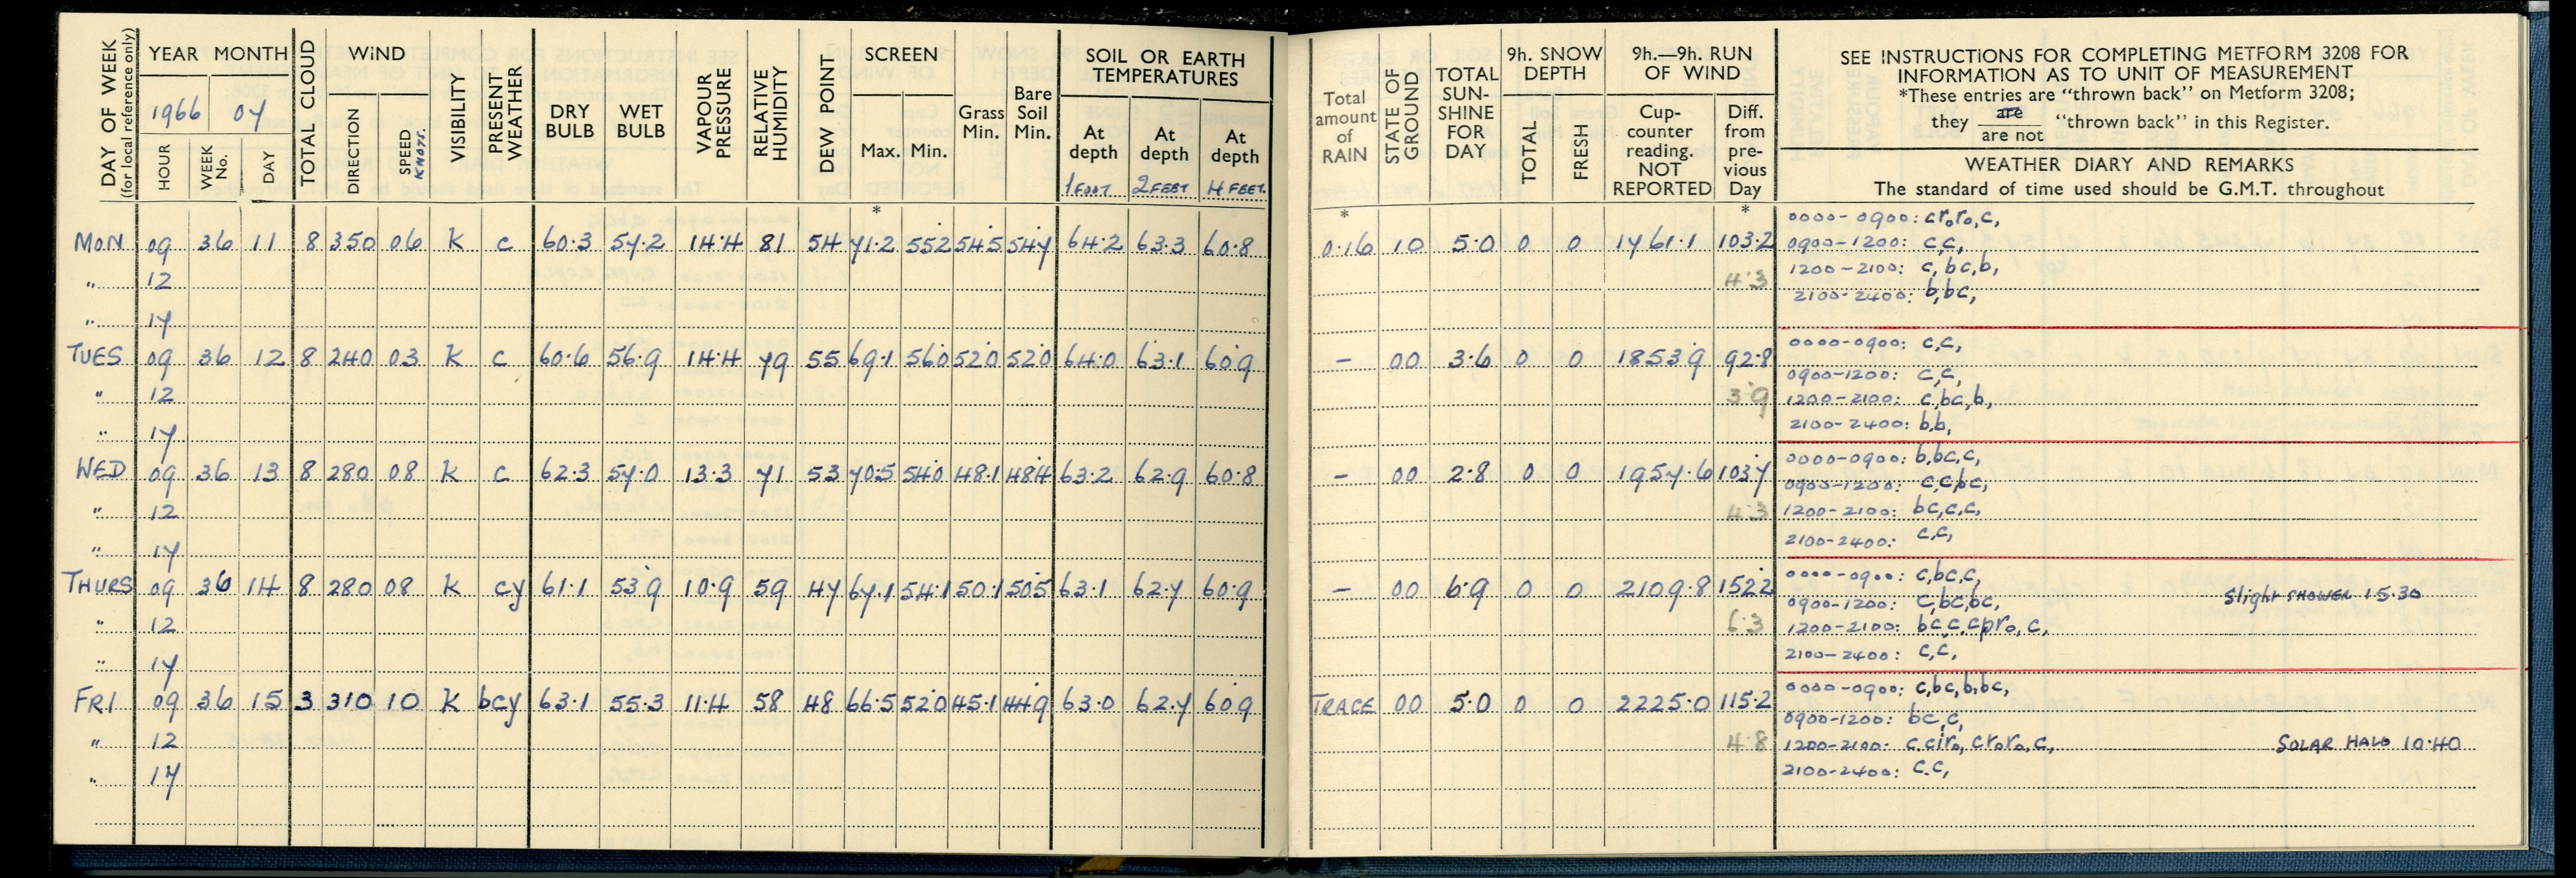 DAY OF WEEK
(for local reference only)
YEAR MONTH
1966 07
HOUR
WEEK No.
DAY
TOTAL CLOUD
WIND
DIRECTION
SPEED KNOTS.
VISIBILITY
PRESENT WEATHER
DRY BULB
WET BULB
VAPOUR PRESSURE
RELATIVE HUMIDITY
DEW POINT
SCREEN
Max. Min.
*
Grass Min.
Bare Soil Min.
SOIL OR EARTH TEMPERATURES
At depth 1 FOOT
At depth 2 FEET
At depth 4 FEET.
Total amount of RAIN
*
STATE OF GROUND
TOTAL SUN-SHINE FOR DAY
9h. SNOW DEPTH
TOTAL
FRESH
9h.—9h. RUN OF WIND
Cup-counter reading. NOT REPORTED
Diff. from pre-vious Day
*
SEE INSTRUCTIONS FOR COMPLETING METFORM 3208 FOR
INFORMATION AS TO UNIT OF MEASUREMENT
*These entries are "thrown back" on Metform 3208;
they are / are not "thrown back" in this Register.
WEATHER DIARY AND REMARKS
The standard of time used should be G.M.T. throughout
MON 09 36 11 8 350 06 K c 60.3 57.2 14.4 81 54 71.2 55.2 54.5 54.7 64.2 63.3 60.8 0.16 10 5.0 0 0 1761.1 103.2
0000-0900: cr₀r₀,c,
0900-1200: c,c,
" 12 4.3
1200-2100: c,bc,b,
2100-2400: b,bc,
" 17
TUES 09 36 12 8 240 03 K c 60.6 56.9 14.4 79 55 69.1 56.0 52.0 52.0 64.0 63.1 60.9 - 00 3.6 0 0 1853.9 92.8
0000-0900: c,c,
0900-1200: c,c,
" 12 3.9
1200-2100: c,bc,b,
2100-2400: b,b,
" 17
WED 09 36 13 8 280 08 K c 62.3 57.0 13.3 71 53 70.5 54.0 48.1 48.4 63.2 62.9 60.8 - 00 2.8 0 0 1957.6 103.7
0000-0900: b,bc,c,
0900-1200: c,c,bc,
" 12 4.3
1200-2100: bc,c,c,
2100-2400: c,c,
" 17
THURS 09 36 14 8 280 08 K cy 61.1 53.9 10.9 59 47 67.1 54.1 50.1 50.5 63.1 62.7 60.9 - 00 6.9 0 0 2109.8 152.2
0000-0900: c,bc,c,
0900-1200: c,bc,bc,
Slight SHOWER 15.30
" 12 6.3
1200-2100: bc,c,cpr₀,c,
2100-2400: c,c,
" 17
FRI 09 36 15 3 310 10 K bcy 63.1 55.3 11.4 58 48 66.5 52.0 45.1 44.9 63.0 62.7 60.9 TRACE 00 5.0 0 0 2225.0 115.2
0000-0900: c,bc,b,bc,
0900-1200: bc,c,
" 12 4.8
1200-2100: c,cir₀,cr₀r₀,c,
SOLAR HALO 10.40
2100-2400: c,c,
" 17